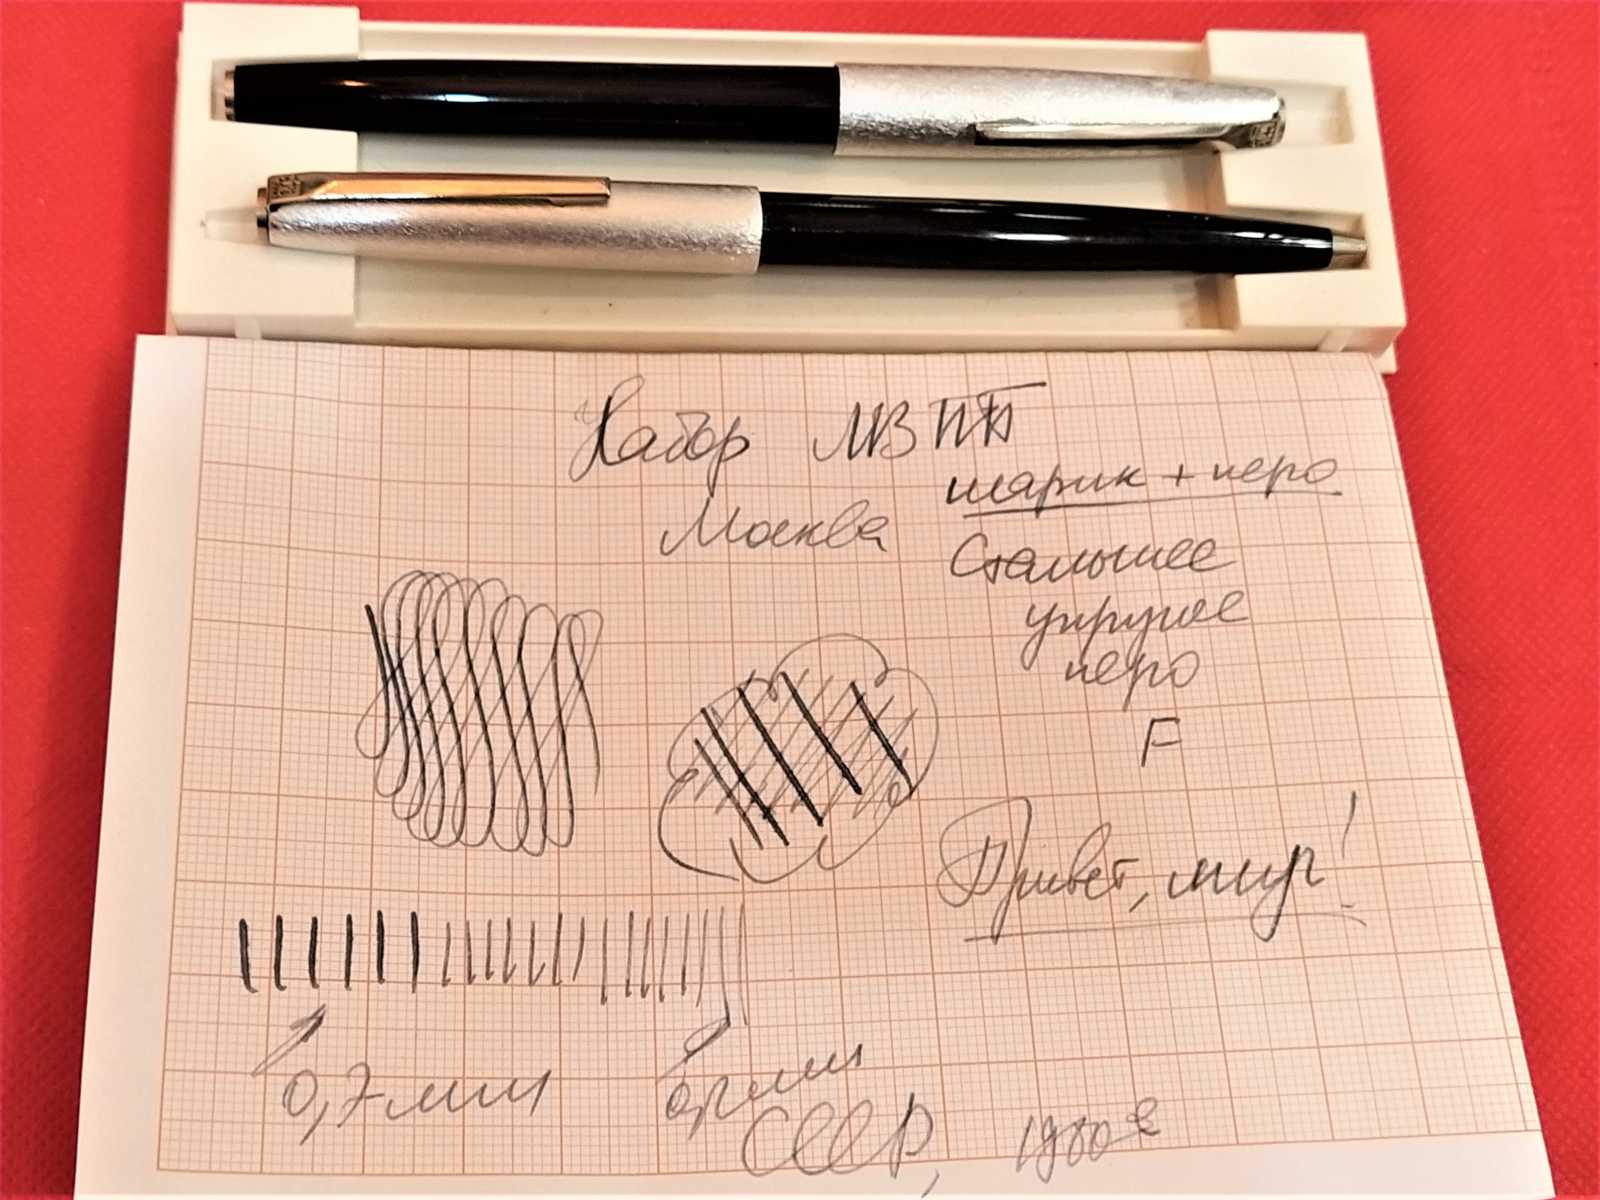 Набор МВПБ
шарик + перо
Москва
Стальное
упругое
перо
F
Привет, мир!
0,7 мм
мм
СССР, 1980е